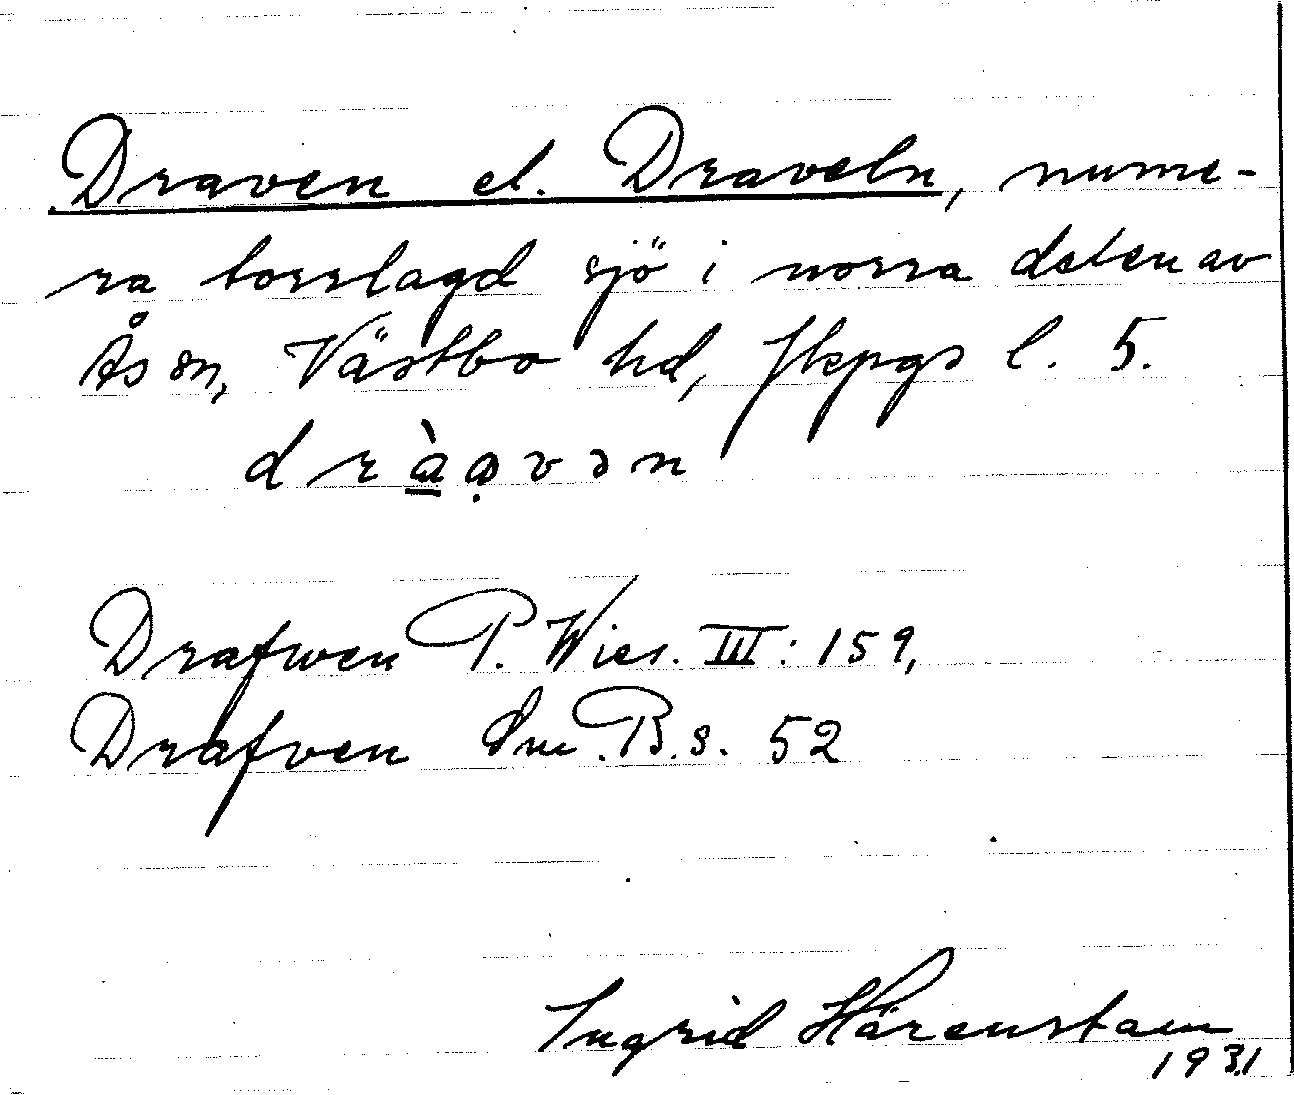 Draven el. Draveln, nume-
ra torrlagd sjö i norra delen av
Ås sn, Västbo hd, Jkpgs l. 5.
dràa̤vən
Drafwen P. Wies. III: 159,
Drafven Sm. B. s. 52
Ingrid Härenstam
1931